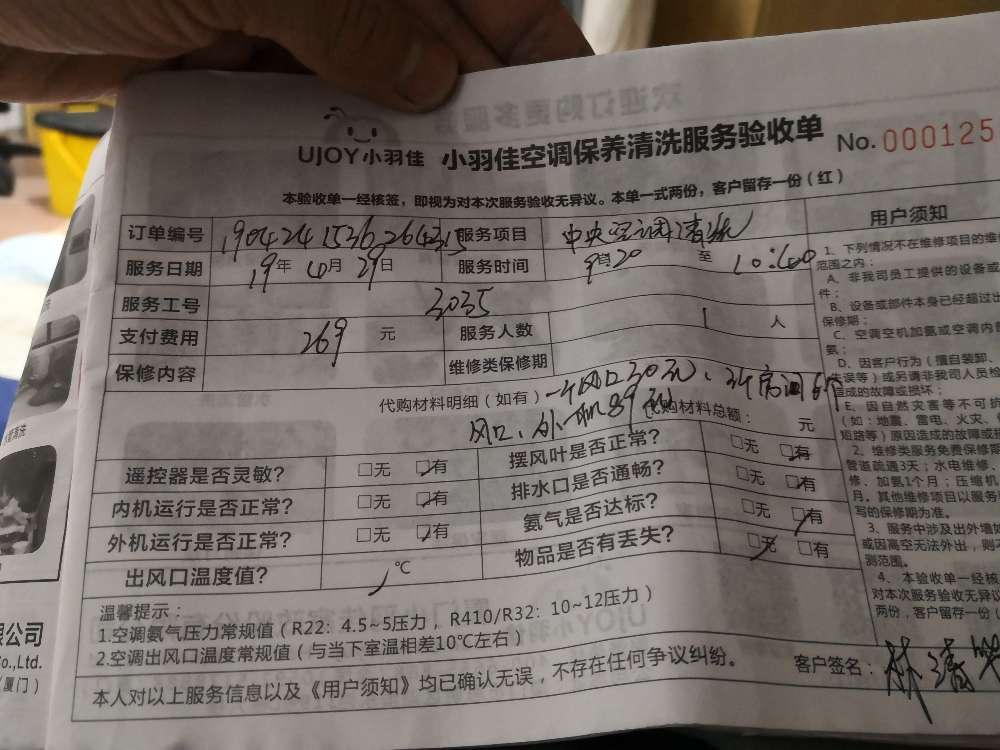 UJOY小羽佳 小羽佳空调保养清洗服务验收单 No.000125
本验收单一经核签，即视为对本次服务验收无异议。本单一式两份，客户留存一份（红）
订单编号 服务项目 中央空调清洗
服务日期 19年10月29日 服务时间 9:20至10:40
服务工号 3035
支付费用 269元 服务人数 1人
保修内容 维修类保修期
代购材料明细（如有）一个风口30元、3个房间6个
风口、外机89元 代购材料总额： 元
遥控器是否灵敏？ □无 □有 摆风叶是否正常？ □无 □有
内机运行是否正常？ □无 □有 排水口是否通畅？ □无 □有
外机运行是否正常？ □无 □有 氨气是否达标？ □无 □有
出风口温度值？ ℃ 物品是否有丢失？ □无 □有
温馨提示：
1.空调氨气压力常规值（R22：4.5~5压力，R410/R32：10~12压力）
2.空调出风口温度常规值（与当下室温相差10℃左右）
本人对以上服务信息以及《用户须知》均已确认无误，不存在任何争议纠纷。 客户签名：林
用户须知
1、下列情况不在维修项目的维
范围之内：
A、非我司员工提供的设备或
件；
B、设备或部件本身已经超过出
保修期；
C、空调空机加氨或空调内
氨；
D、因客户行为（擅自装卸、
失误等）或另请非我司人员检
造成的故障或损坏；
E、因自然灾害等不可抗
（如：地震、雷电、火灾、
短路等）原因造成的故障或损
2、维修类服务免费保修期
管道疏通3天；水电维修、
修、加氨1个月；压缩机
月。其他维修项目以服务
写的保修期为准。
3、服务中涉及出外墙加
或因高空无法外出，则
测范围。
4、本验收单一经核
对本次服务验收无异议
两份，客户留存一份（
限公司
Co.,Ltd.
（厦门）